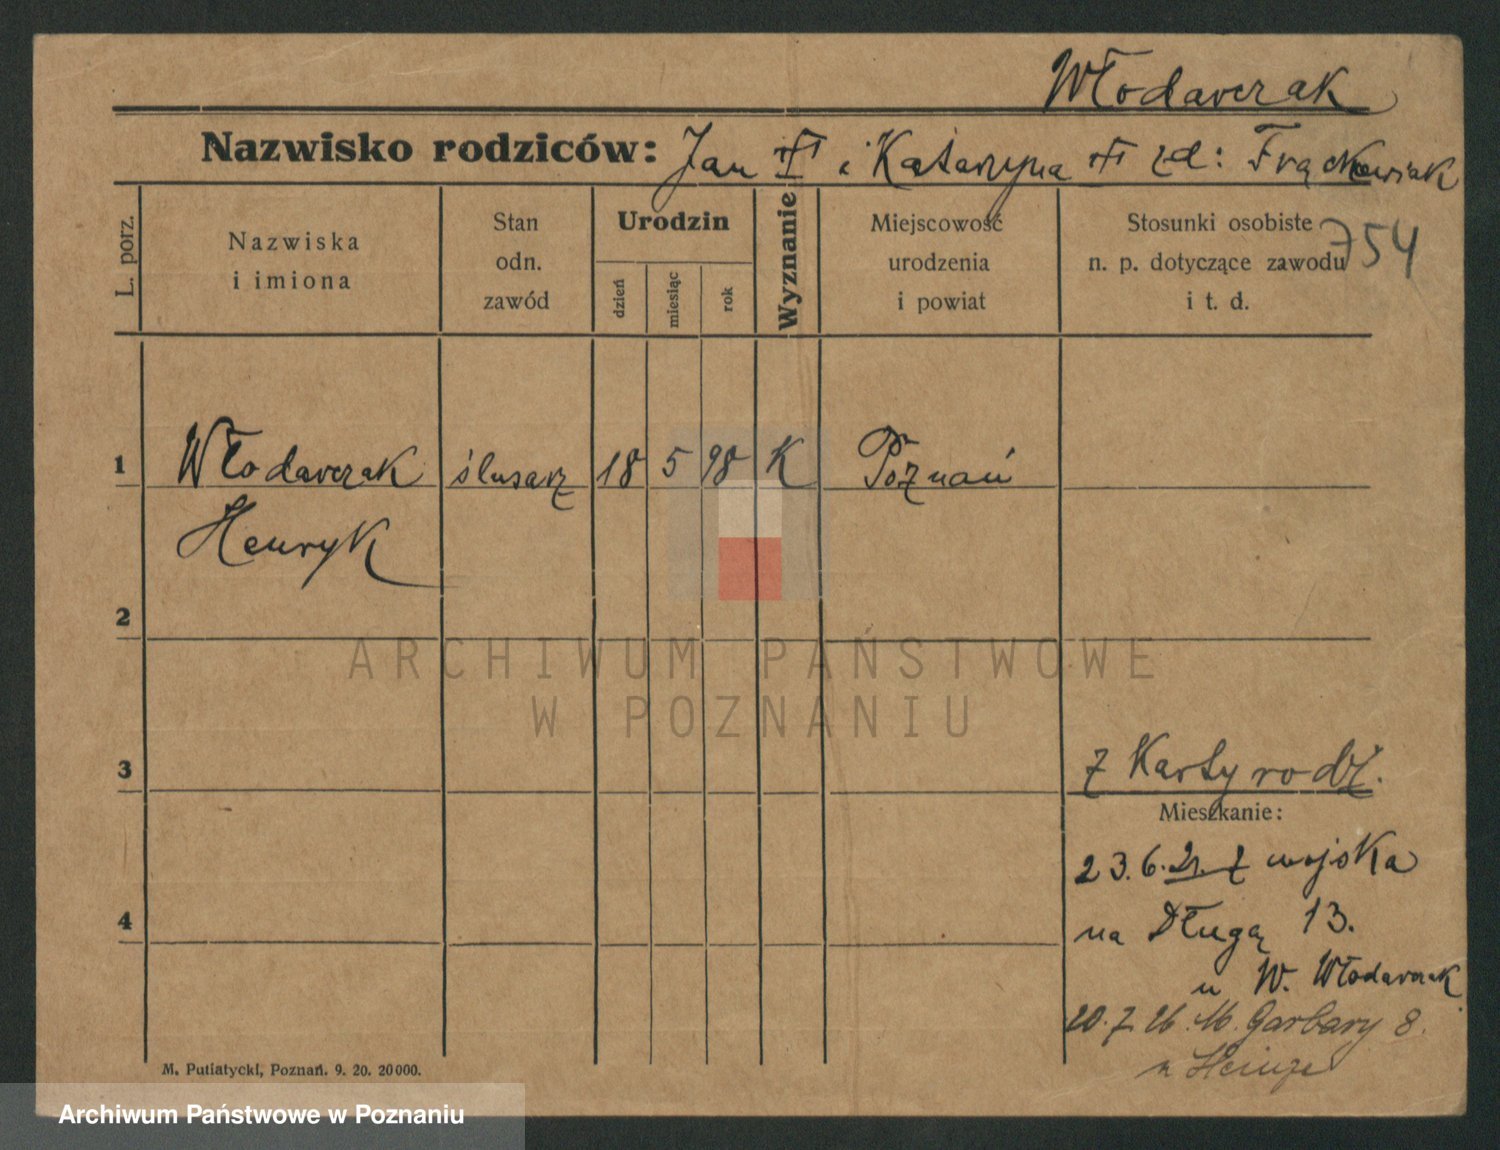 Włodarczak
Nazwisko rodziców: Jan i Katarzyna zd: Frąckowiak
754
L. porz.
Nazwiska
i imiona
Stan
odn.
zawód
Urodzin
dzień
miesiąc
rok
Wyznanie
Miejscowość
urodzenia
i powiat
Stosunki osobiste
n. p. dotyczące zawodu
i t. d.
1 Włodarczak ślusarz 18 5 98 K Poznań
Henryk
2
3
z Karty rodz.
Mieszkanie:
23.6.21. z wojska
4
na Długą 13.
u W. Włodarczak
20.7.26. M. Garbary 8.
u Heinze
M. Putiatycki, Poznań. 9. 20. 20000.
ARCHIWUM PAŃSTWOWE
W POZNANIU
Archiwum Państwowe w Poznaniu